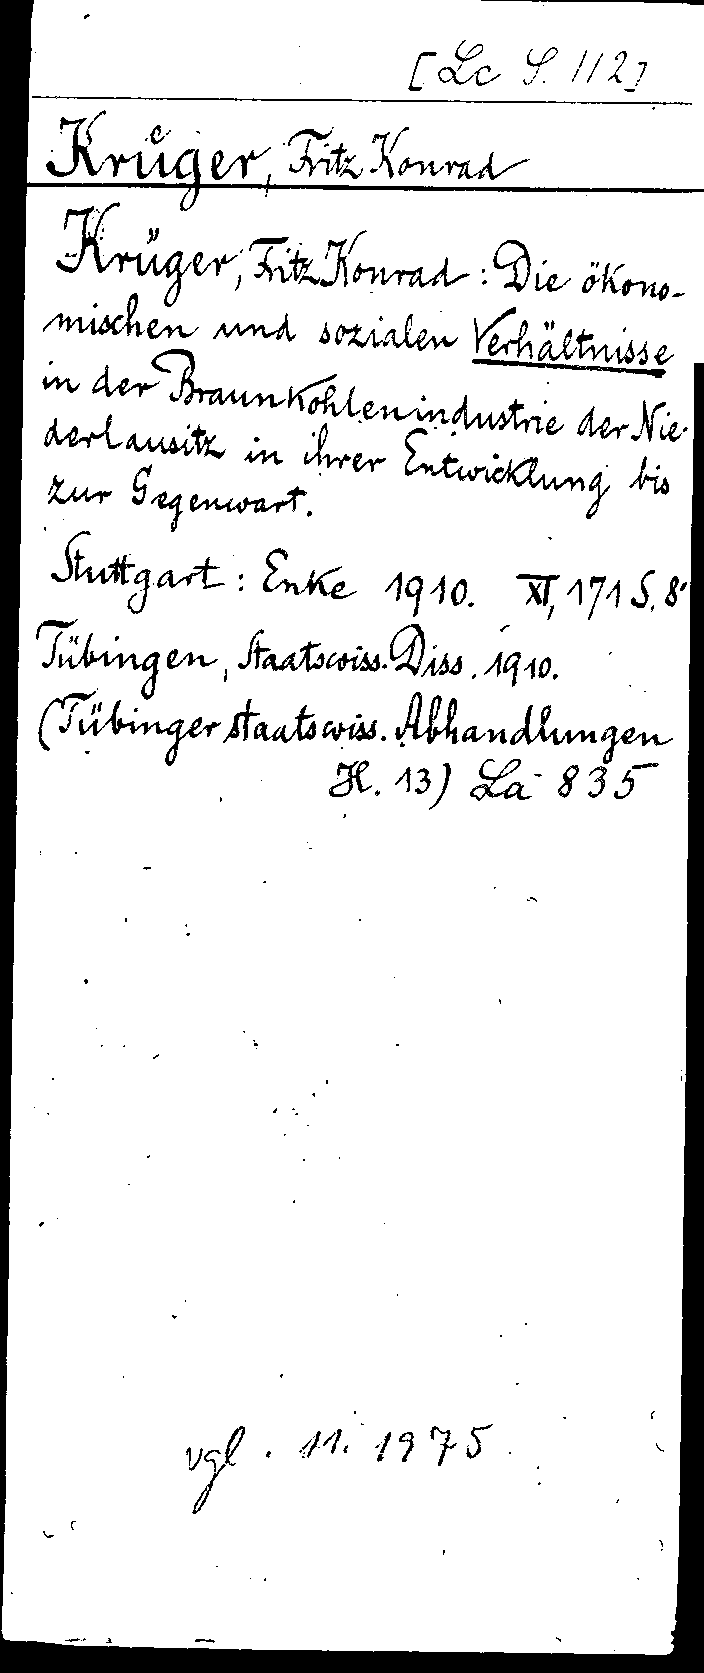 [Lc S. 112]
Krůger, Fritz Konrad
Krüger, Fritz Konrad: Die ökono-
mischen und sozialen Verhältnisse
in der Braunkohlenindustrie der Nie-
derlausitz in ihrer Entwicklung bis
zur Gegenwart.
Stuttgart: Enke 1910. XI, 171 S. 8°
Tübingen, Staatswiss. Diss. 1910.
(Tübinger staatswiss. Abhandlungen
H. 13) La 835
vgl. 11. 1975